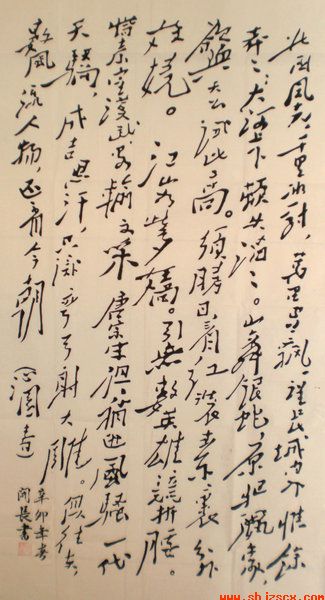 北国风光，千里冰封，萬里雪飘。望长城内外，惟餘
莽々，大河上下，顿失滔々。山舞银蛇，原驰蜡象，
欲與天公试比高。须晴日，看红装素裹，分外
妖娆。江山如此多嬌。引無數英雄競折腰。
惜秦皇漢武，略输文采。唐宗宋祖，稍逊風骚。一代
天驕，成吉思汗，只识弯弓射大雕。俱往矣，
數風流人物，还看今朝 沁園春
辛卯年春
闻长書
www.shizscx.com